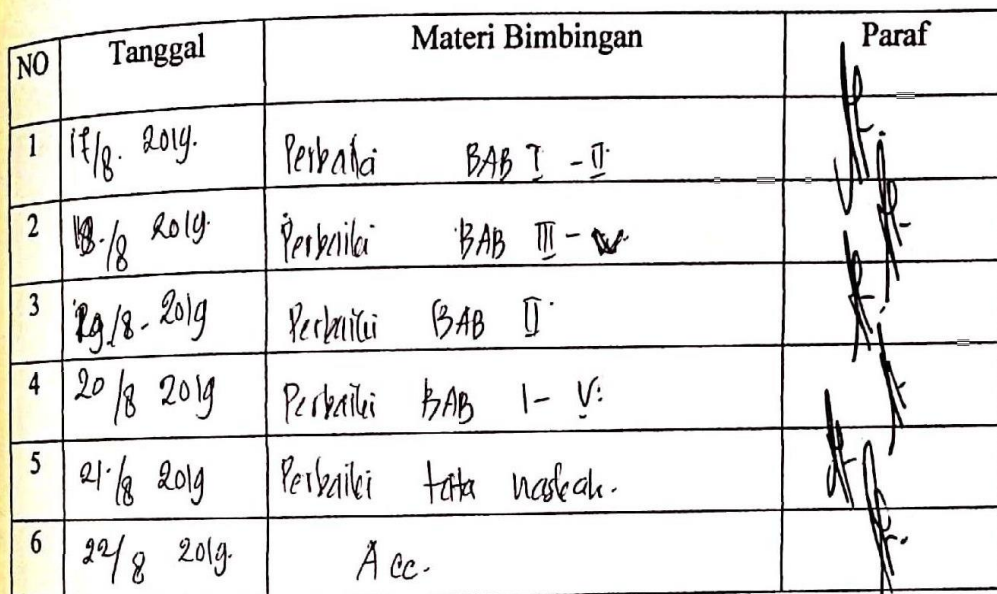 NO Tanggal Materi Bimbingan Paraf
1 17/8. 2019. Perbaiki BAB I - II
2 18/8 2019. Perbaiki BAB III -
3 19/8 - 2019 Perbaiki BAB II
4 20/8 2019 Perbaiki BAB I - V.
5 21/8 2019 Perbaiki tata naskah.
6 22/8 2019. Acc.